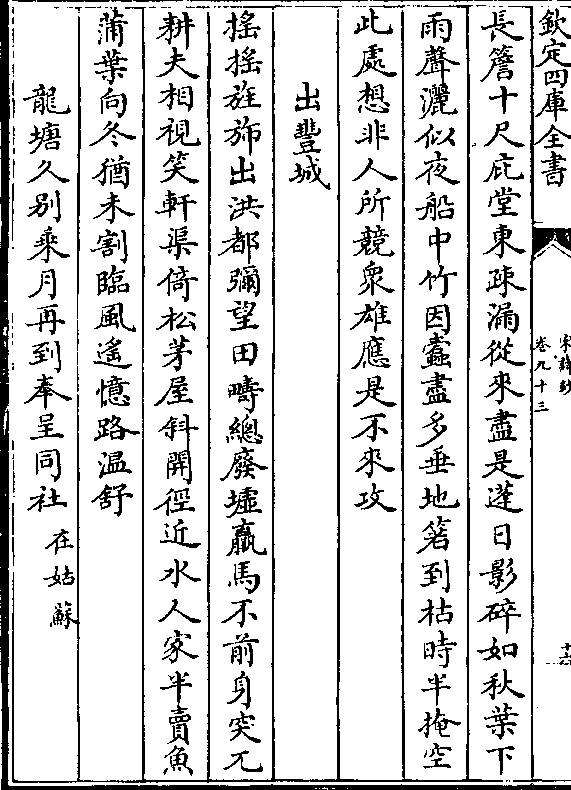 欽定四庫全書
宋詩鈔
卷九十三
長簷十尺庇堂東疎漏從來盡是蓬日影碎如秋葉下
雨聲灑似夜船中竹因蠧盡多垂地箬到枯時半掩空
此處想非人所競衆雄應是不來攻
出豐城
搖搖旌斾出洪都彌望田疇總廢墟羸馬不前身突兀
耕夫相視笑軒渠倚松茅屋斜開徑近水人家半賣魚
蒲葉向冬猶未割臨風遙憶路温舒
龍塘久别乘月再到奉呈同社在姑蘇